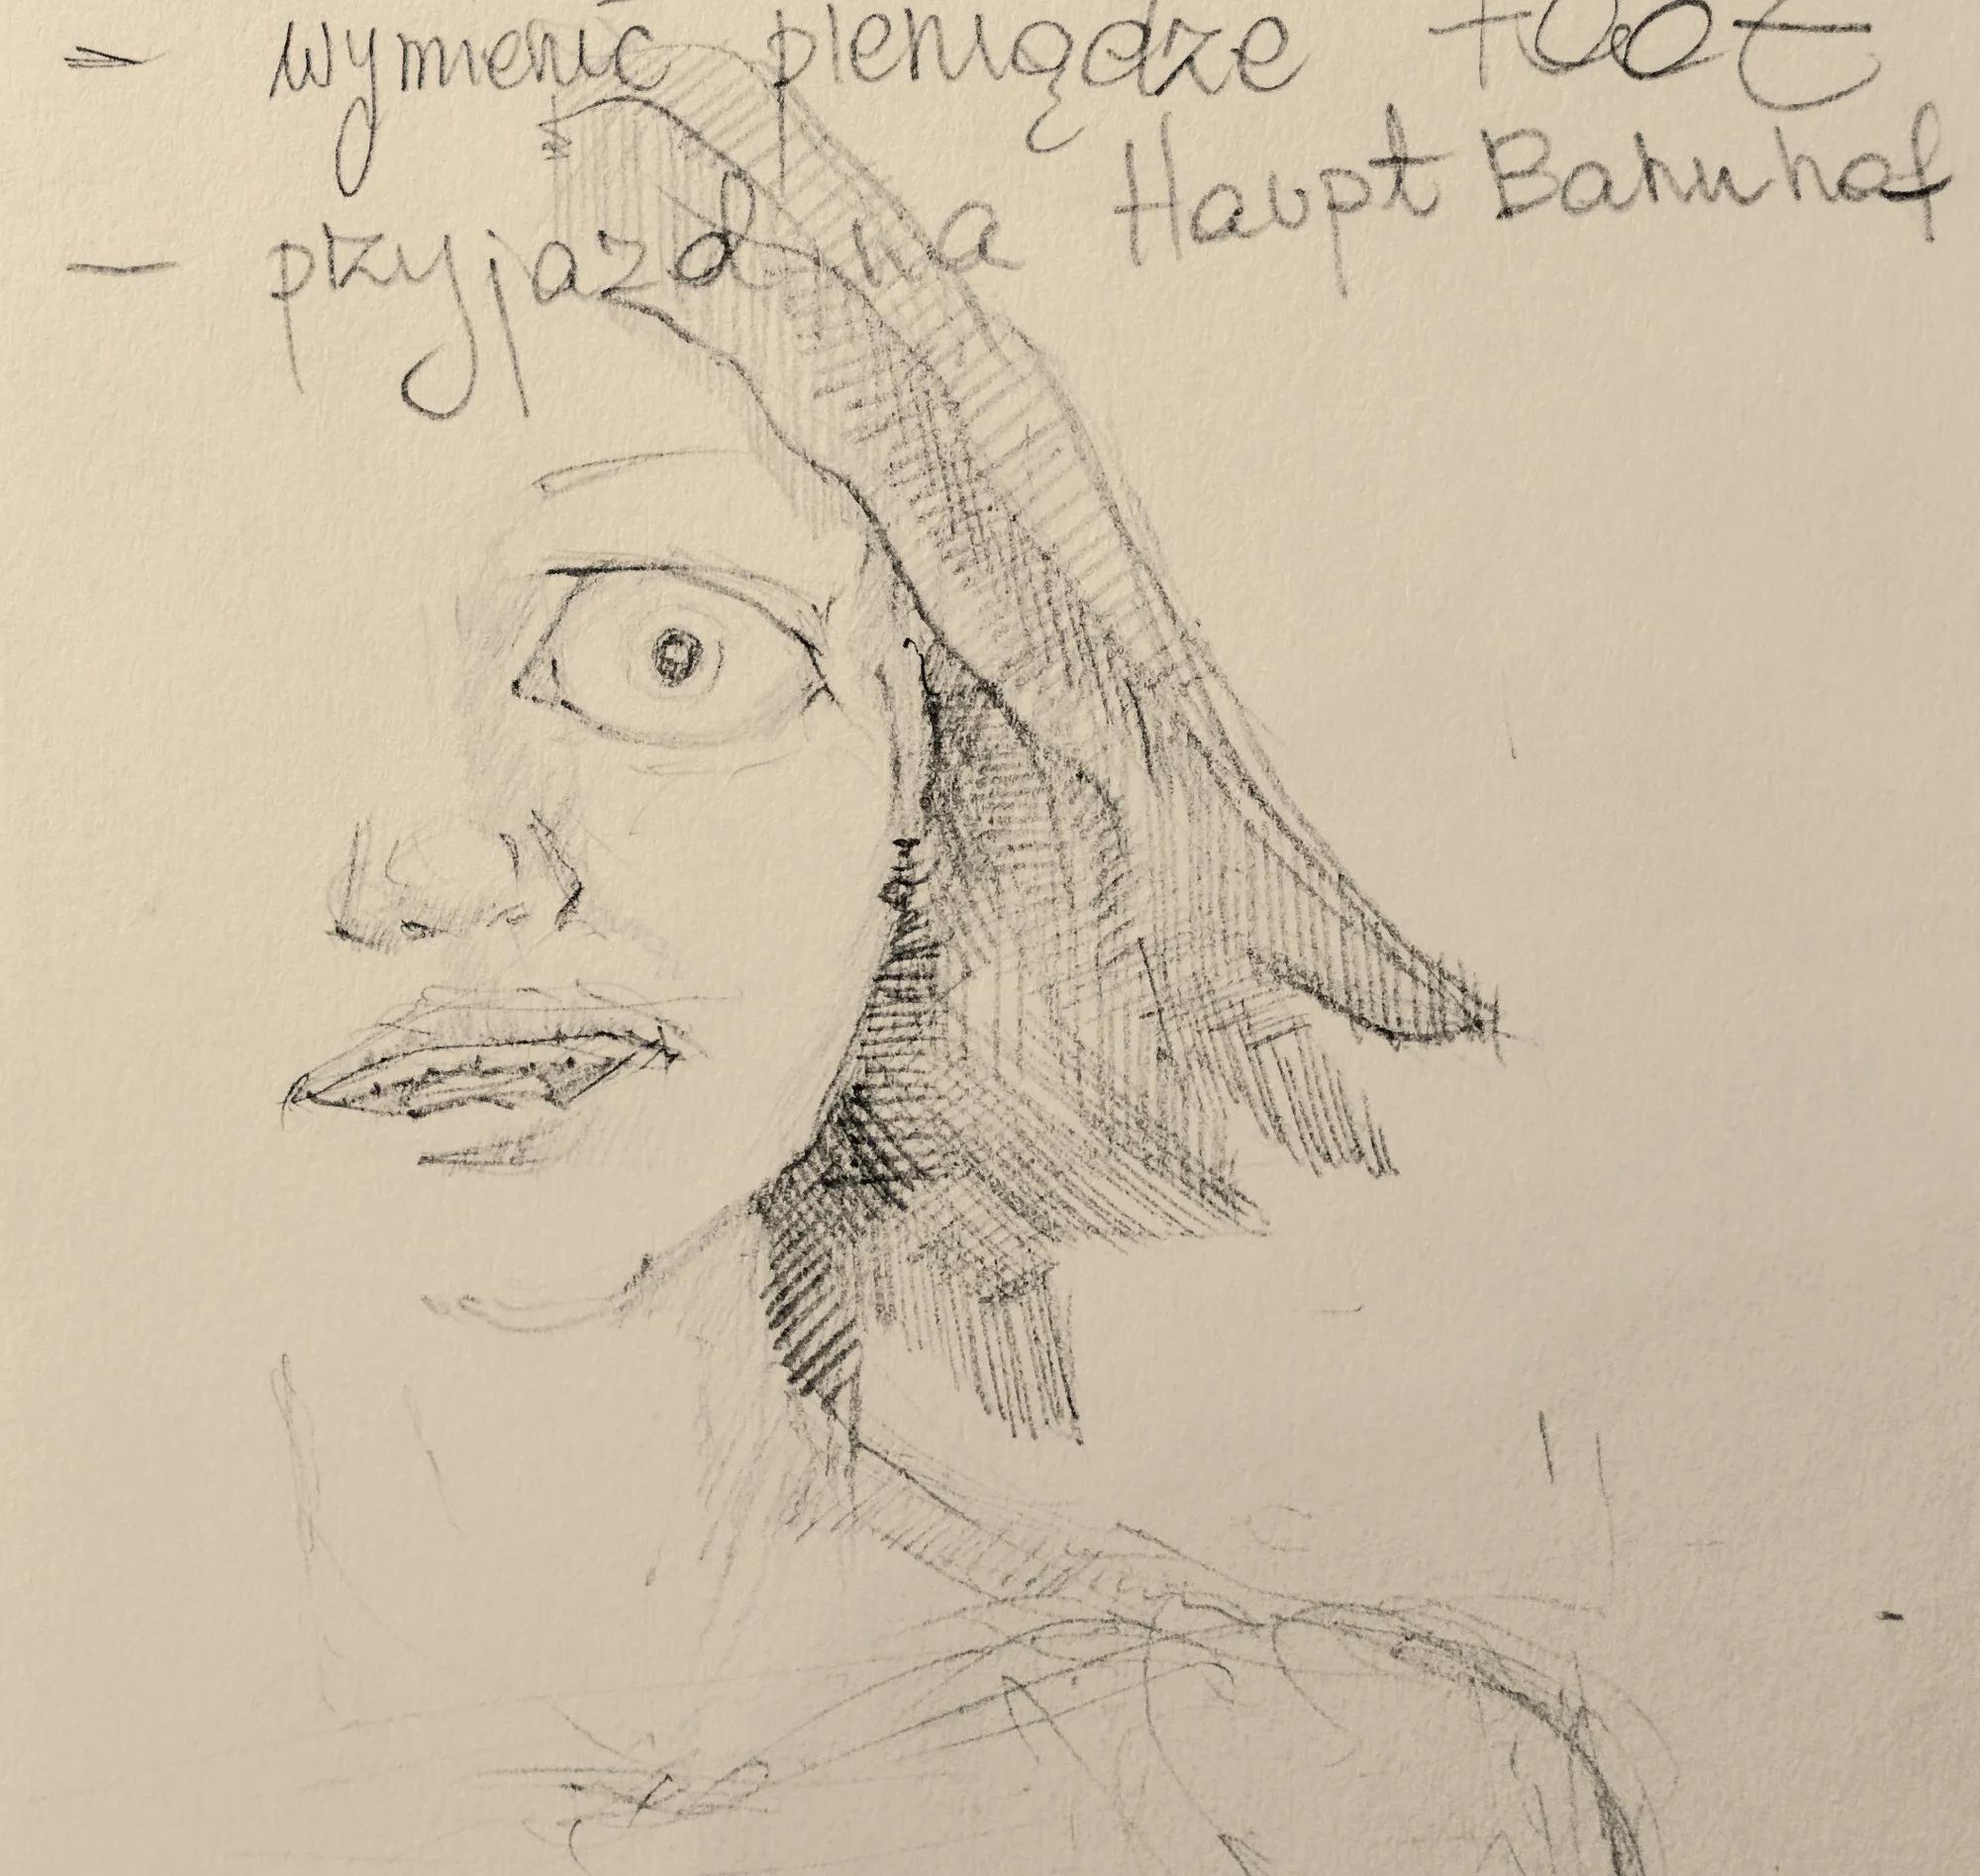 = wymienić pieniądze
- przyjazd na Haupt Bahnhof